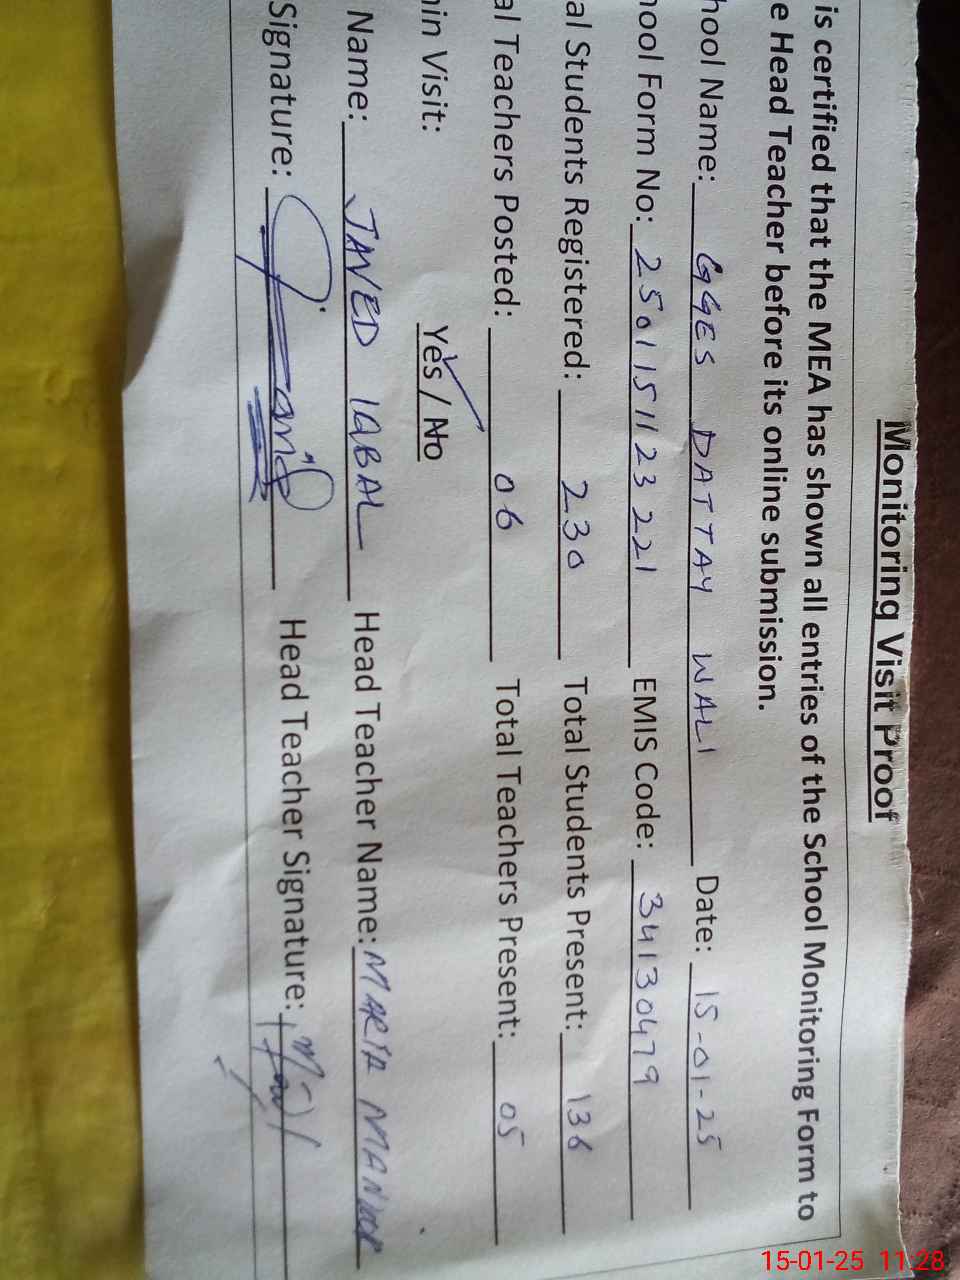 Monitoring Visit Proof
is certified that the MEA has shown all entries of the School Monitoring Form to
e Head Teacher before its online submission.
hool Name: GGES DATTAY WALI Date: 15-01-25
hool Form No: 2501151123221 EMIS Code: 34130479
al Students Registered: 230 Total Students Present: 136
al Teachers Posted: 06 Total Teachers Present: 05
in Visit: Yes / No
Name: JAVED IQBAL Head Teacher Name: MARIA
Signature: Head Teacher Signature:
15-01-25 11:28